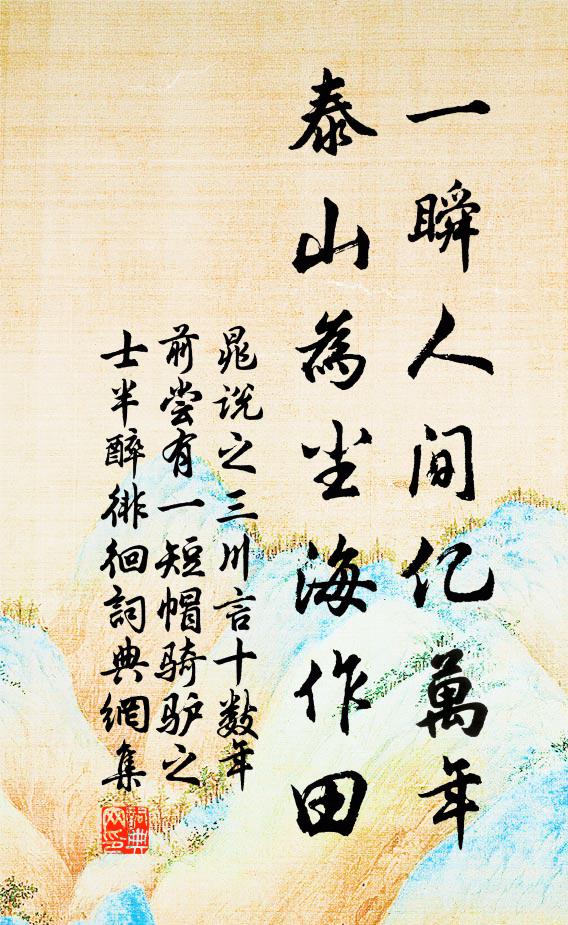 一瞬人间亿萬年
泰山為尘海作田
晁说之三川言十数年
前尝有一短帽骑驴之
士半醉徘徊詞典網集
詞典
网印